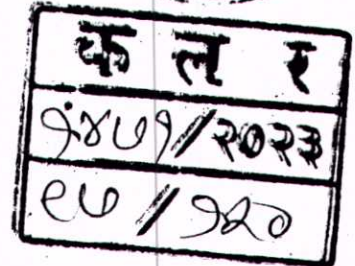 क ल र
१४७१/२०२३
९७ / १२०